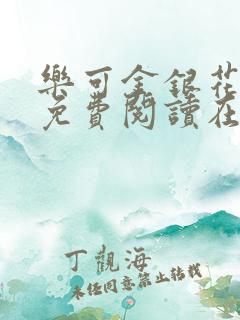 樂可金銀花
免費閱讀在
丁觀海
未经同意禁止转载